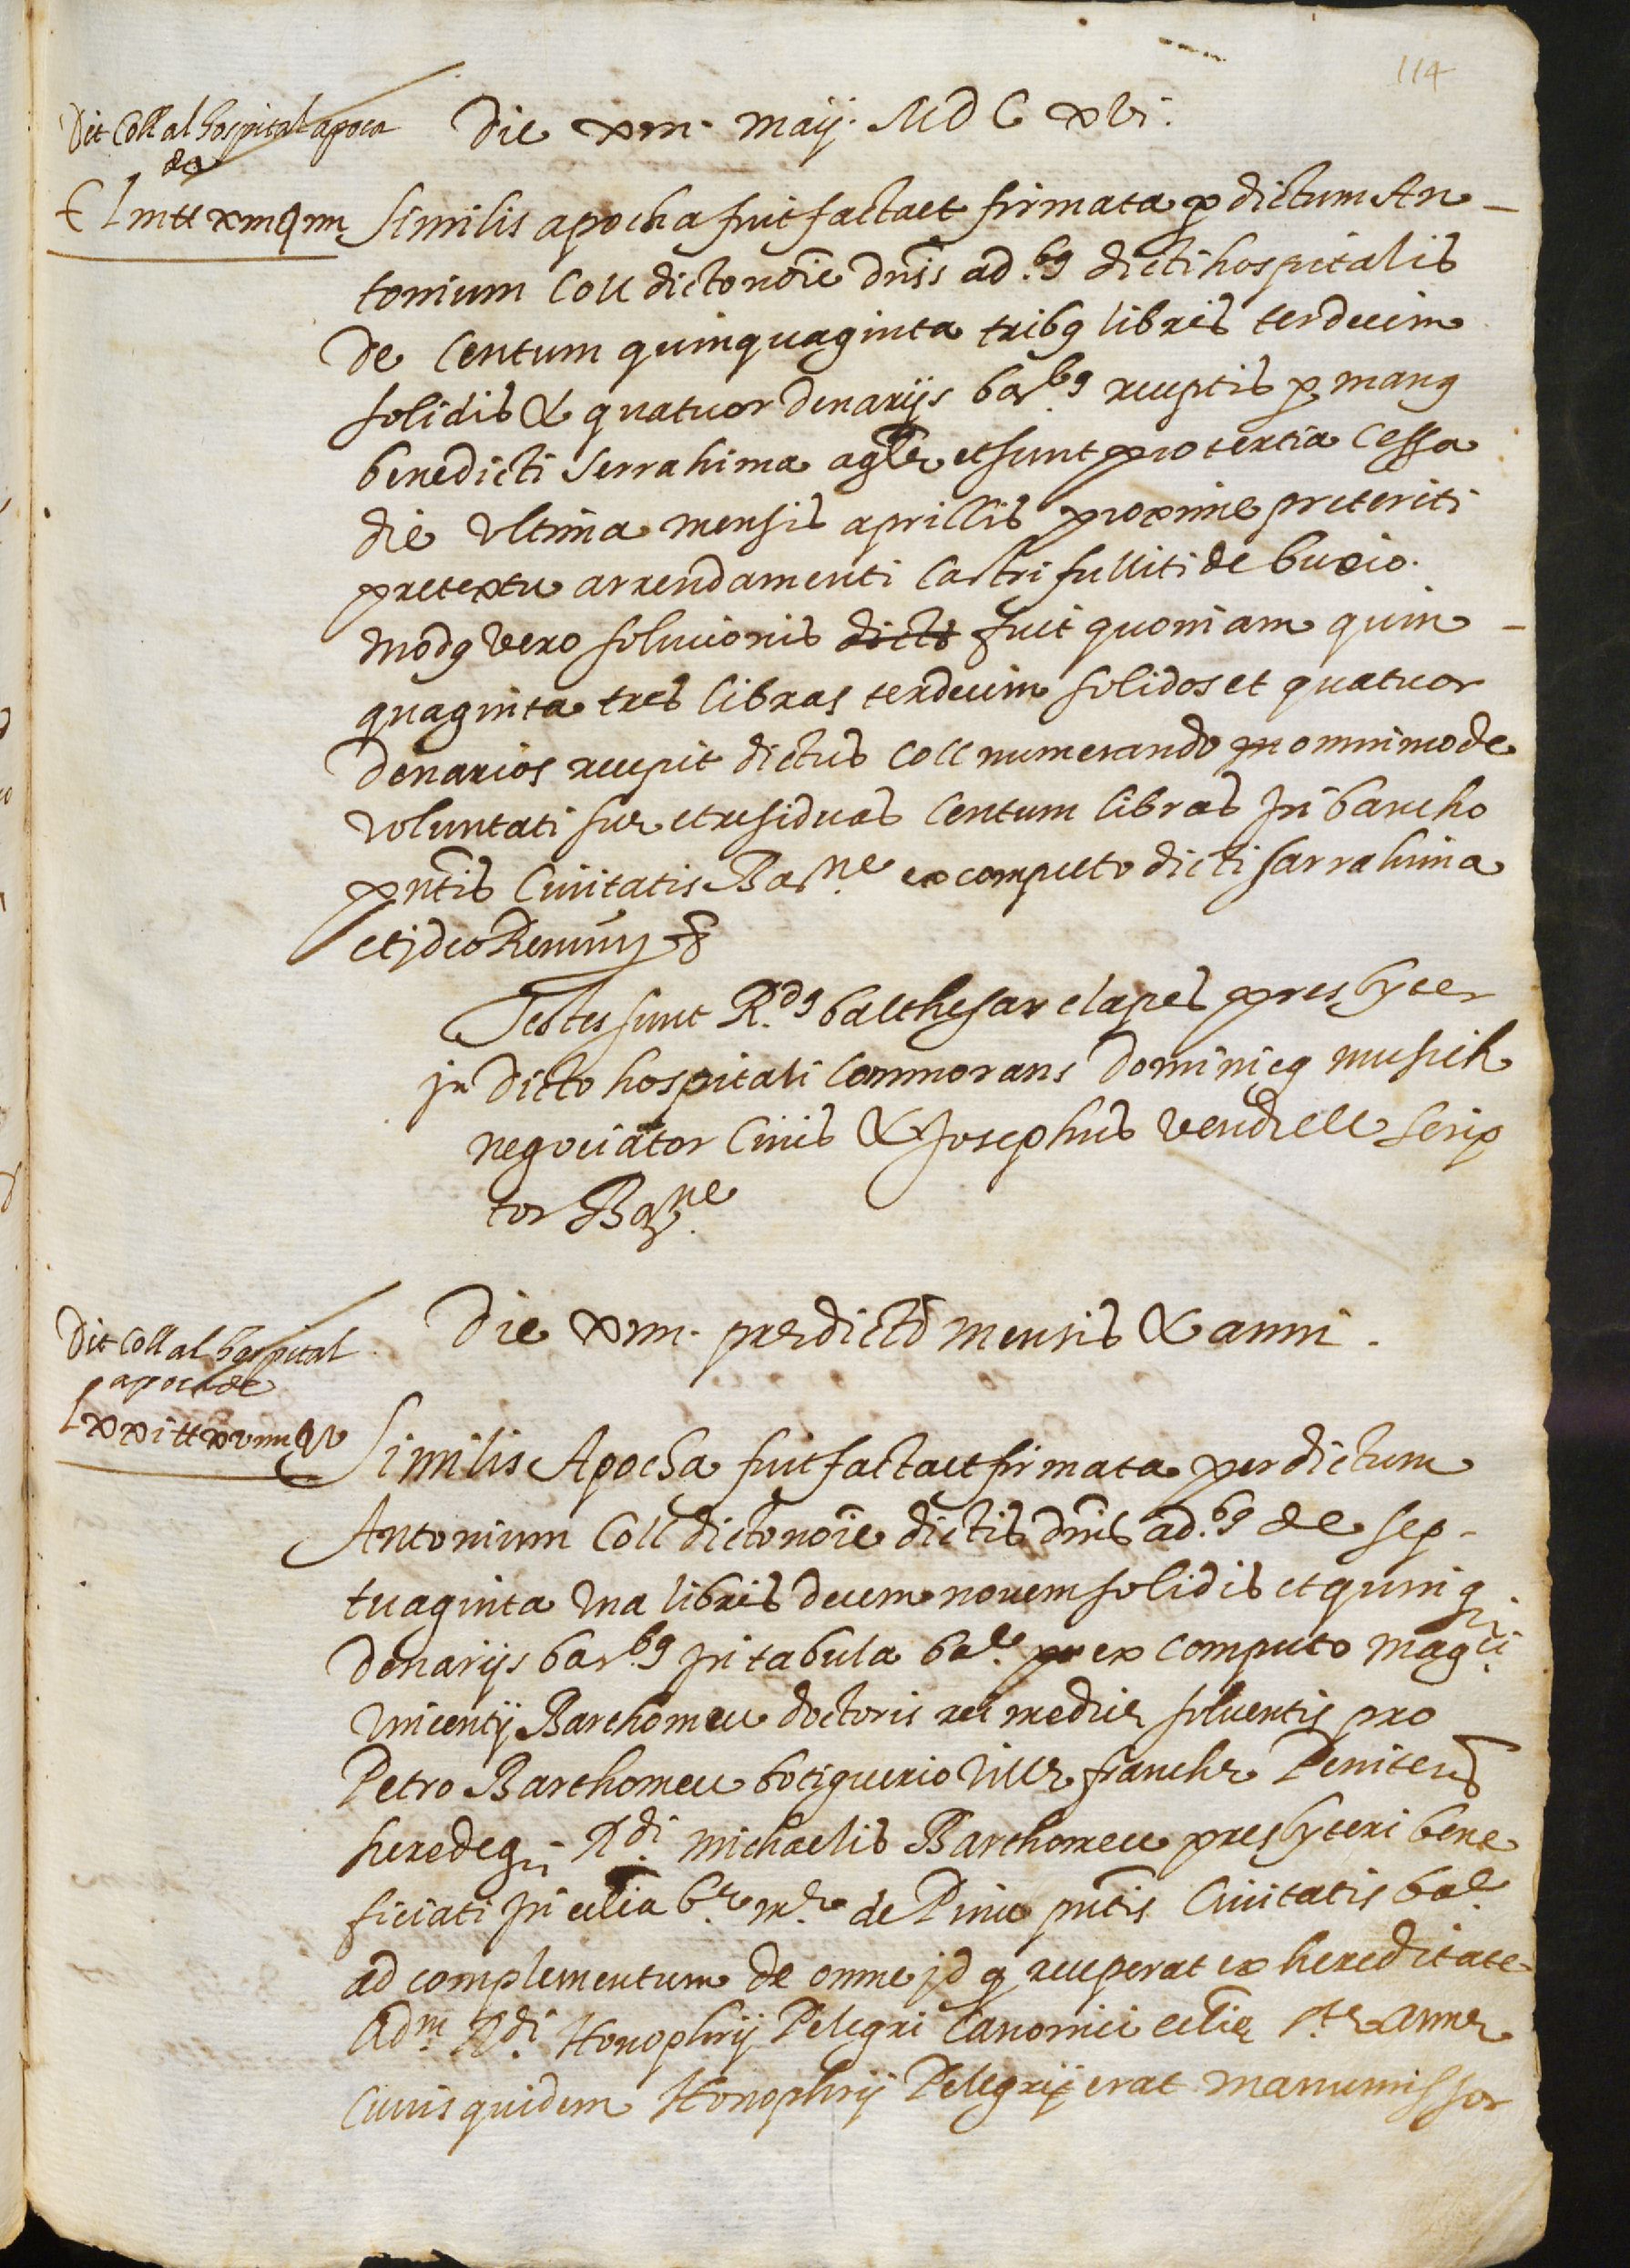 114
Die xiii. maij. MDCxvi.
Dit Coll al hospital apoca
de
CLiii ₶ xiii ẜ iiii
Similis apocha fuit facta et firmata p dictum An-
tonium Coll dicto noīe dnīs ad.bꝯ dicti hospitalis
de Centum quinquaginta tribꝯ libris terdecim
solidis & quatuor denarijs bar.bꝯ receptis p manꝯ
benedicti Serrahima agl̄e et sunt pro tertia Cessa
die vltima mensis aprillis proxime preteriti
pretextu arrendamenti Castri fulliti de buxio.
modꝯ vero solucionis dicte fuit quoniam quin-
quaginta tres libras terdecim solidos et quatuor
denarios recepit dictus Coll numerando in omnimode
voluntati sue et residuas Centum libras in bancho
pntīs Ciuitatis Bar.ne ex computo dicti sarrahima
et jdeo Renun̄ &
Testes sunt R.dꝯ balthesar clapes presbyter
jn dicto hospitali Commorans Dominicꝯ musich
negociator Ciuis & Josephus vendrell scrip
tor Bar.ne
Die xiiii. predictō mensis & anni.
Dit Coll al hospital
apoca de
Lxxi ₶ xviiii ẜ v
Similis Apocha fuit facta et firmata per dictum
Antonium Coll dicto noīe dictis dnīs ad.bꝯ de sep-
tuaginta vna libris decem novem solidis et quinqꝫ
denarijs bar.bꝯ jn tabula ba.e ex computo mag.ci
vincentij Barthomeu doctoris medicie soluentis pro
Petro Barthomeu botiguerio Ville franche Peniteñs
heredeqꝫ R.di michaelis Barthomeu presbyteri bene
ficiati jn ecclīa b.te m.e de Pinu pntīs Ciuitatis ba.e
ad complementum de omne jd q recuperat ex hereditate
adm. R.di Honophrij Pelegri Canonici ecclīe s.te Anne
Cuius quidem Honophrij Pelegrij erat manumissor